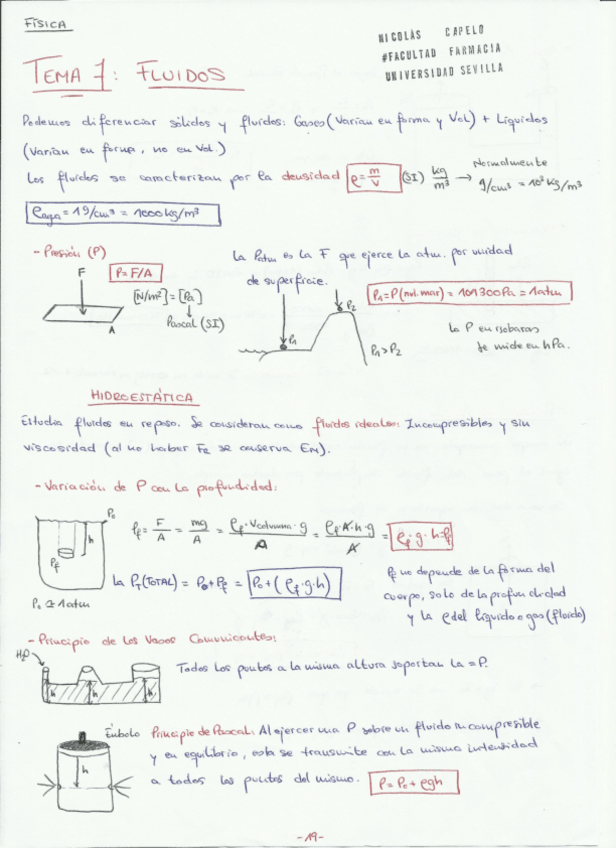 FÍSICA
NICOLÁS CAPELO
#FACULTAD FARMACIA
UNIVERSIDAD SEVILLA
TEMA 7: FLUIDOS
Podemos diferenciar sólidos y fluidos: Gases (Varían en forma y Vol) + Líquidos
(Varían en forma, no en Vol.)
Los fluidos se caracterizan por la densidad ρ = m/V (SI) kg/m³ → Normalmente
g/cm³ = 10³ kg/m³
ρagua = 1g/cm³ = 1000 kg/m³
- Presión (P)
P = F/A
F
[N/m²] = [Pa]
Pascal (SI)
A
La Patm es la F que ejerce la atm. por unidad
de superficie.
P₁ = P(nvl. mar) = 101300 Pa = 1 atm
P₂
P₁
P₁ > P₂
La P en isobaras
se mide en hPa.
HIDROESTÁTICA
Estudia fluidos en reposo. Se consideran como fluidos ideales: Incompresibles y sin
viscosidad (al no haber FR se conserva EM).
- Variación de P con la profundidad:
P₀
h
Pf
P₀ ≅ 1 atm
Pf = F/A = mg/A = ρf · Vcolumna · g / A = ρf · A · h · g / A = ρf · g · h = Pf
La PT (TOTAL) = P₀ + Pf = P₀ + (ρf · g · h)
Pf no depende de la forma del
cuerpo, solo de la profundidad
y la ρ del líquido o gas (fluido)
- Principio de los Vasos Comunicantes:
H₂O
h h h
Todos los puntos a la misma altura soportan la = P.
Émbolo
h
Principio de Pascal: Al ejercer una P sobre un fluido incompresible
y en equilibrio, esta se transmite con la misma intensidad
a todos los puntos del mismo. P = P₀ + ρgh
- 19 -